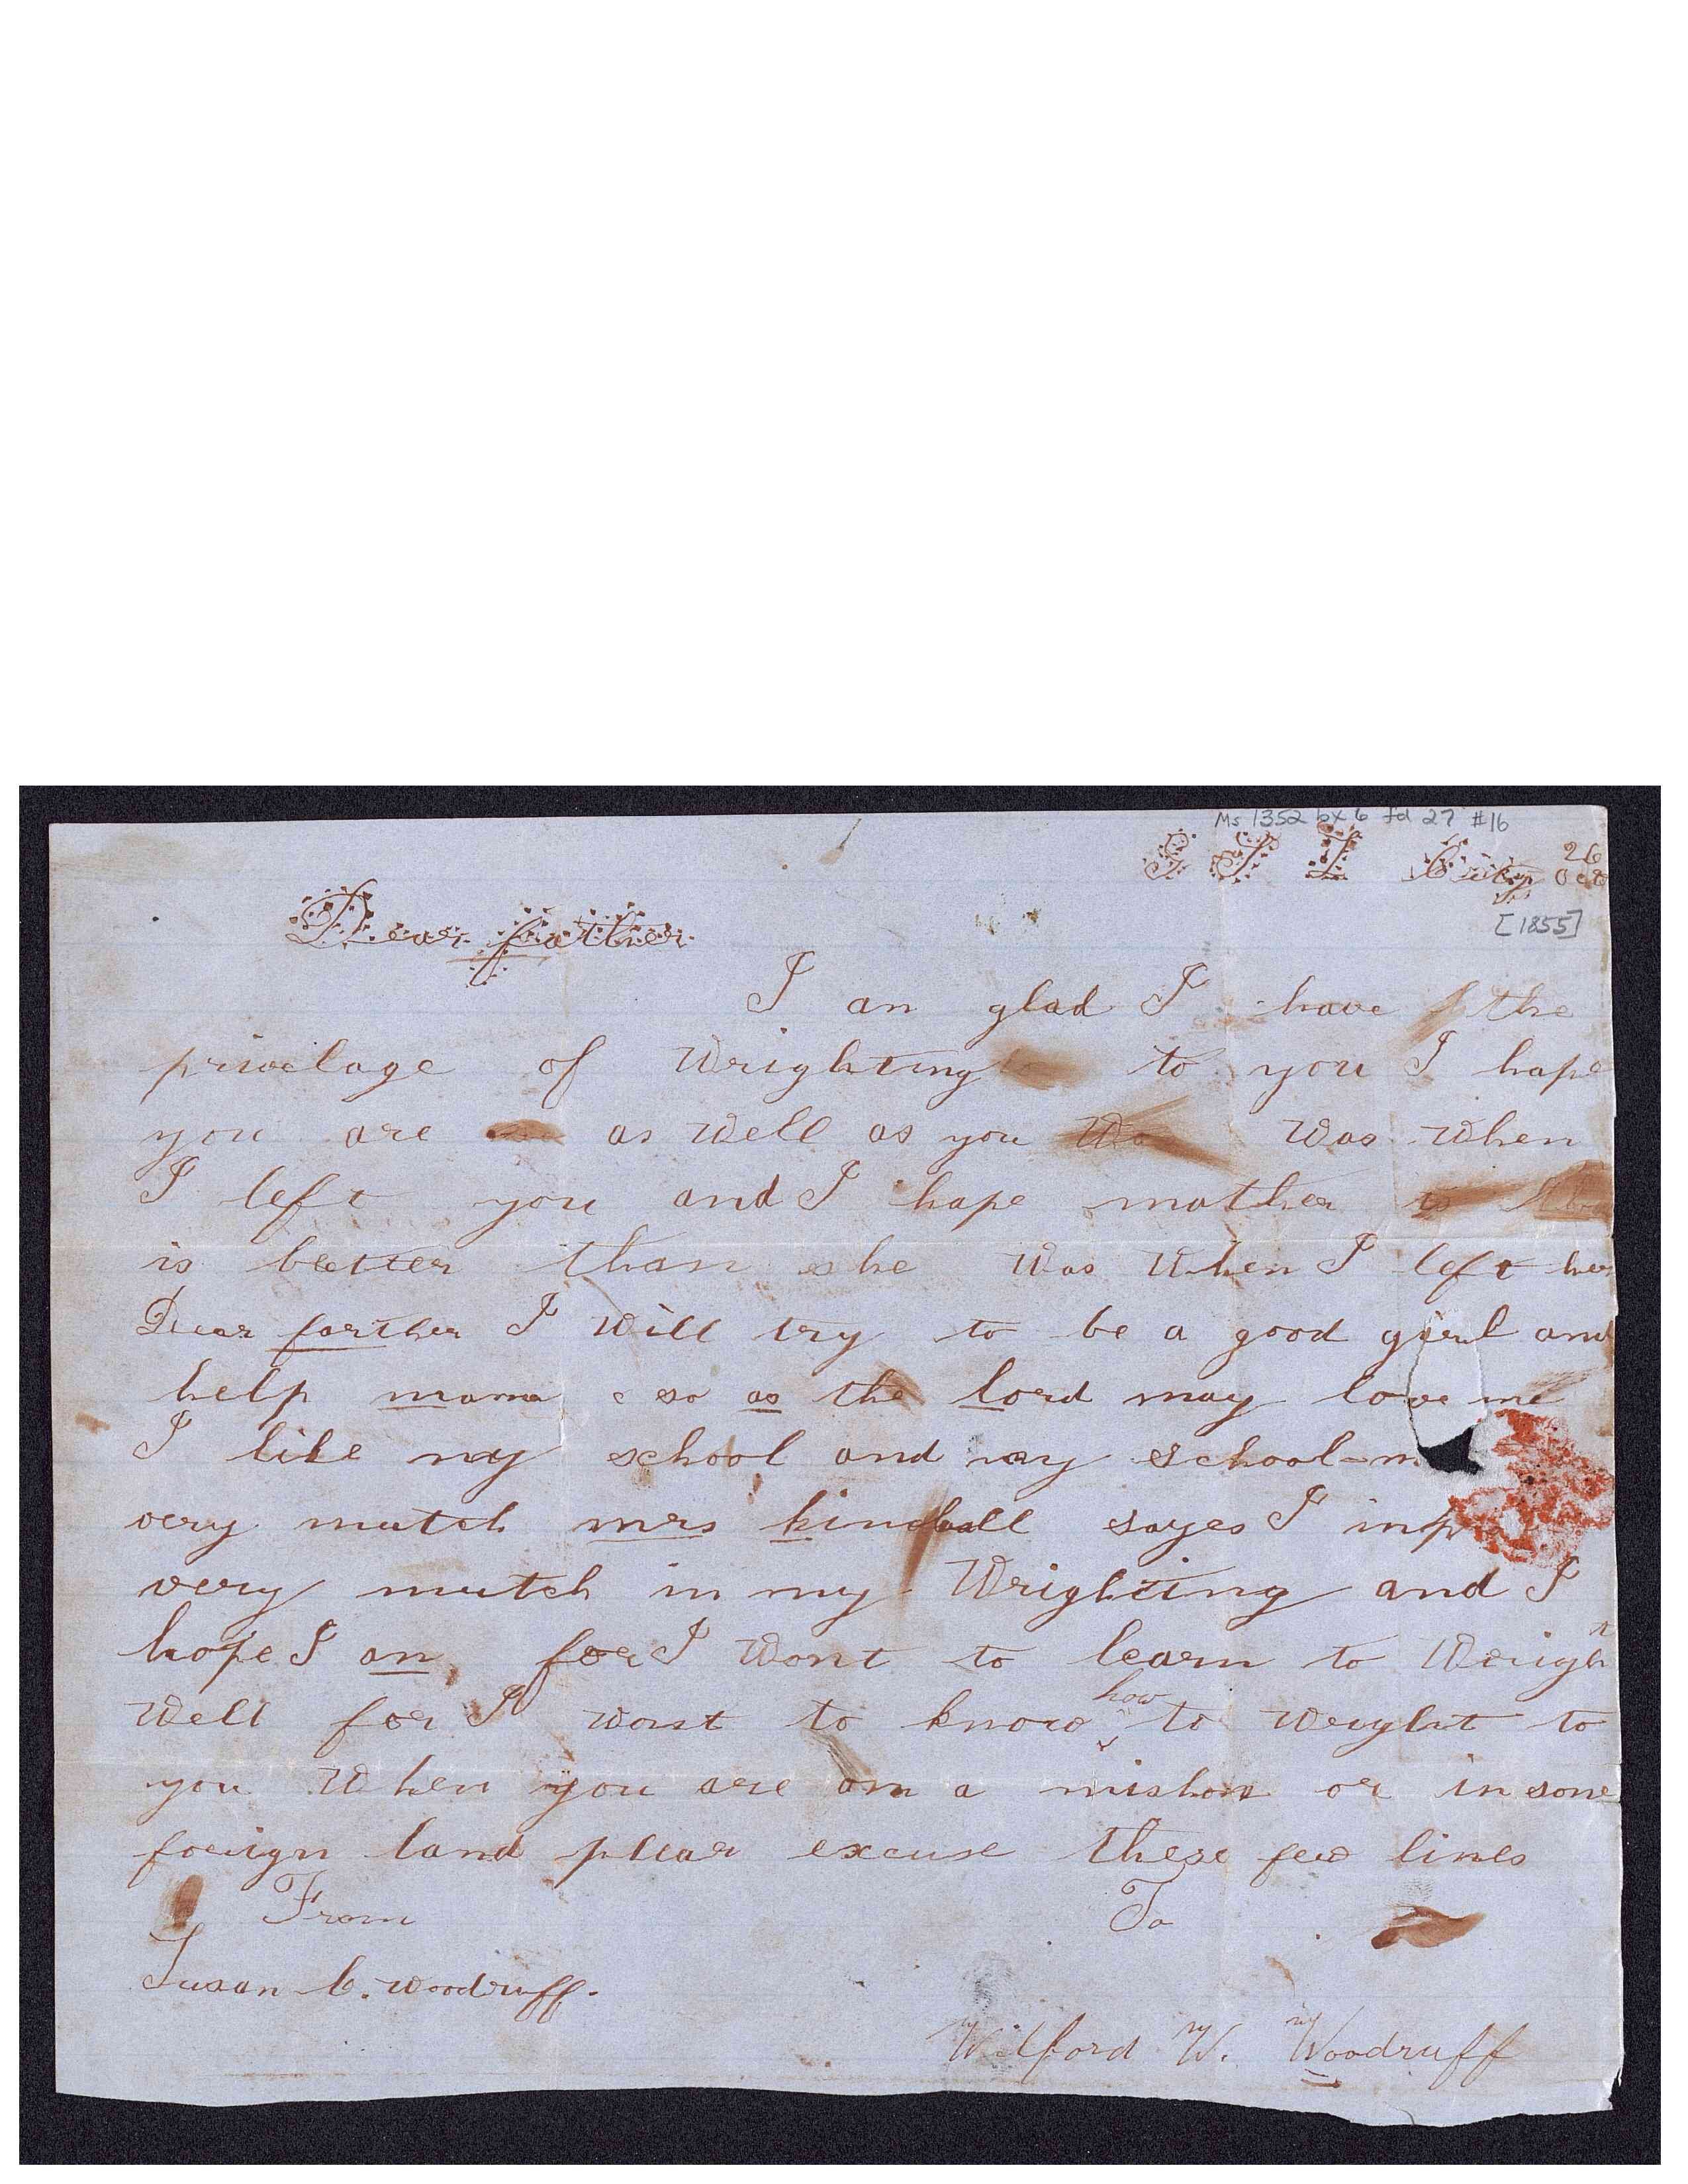 Ms 1352 bx 6 fd 27 #16
G S L City Oct 26
[1855]
Dear father
I an glad I have the
privelage of Wrighting to you I hope
you are as Well as you Was When
I left you and I hope mother
is better than she Was When I left her
Dear farther I Will try to be a good girl and
help mama so as the lord may love me
I like my school and my school-m
very mutch mrs kimball sayes I inp
very mutch in my Wrighting and I
hope I an for I Wont to learn to Wright
Well for I wont to know how to wryht to
you When you are on a mishon or in some
foeign land pleas excuse these few lines
From To
Susan C. Woodruff.
Wilford W. Woodruff